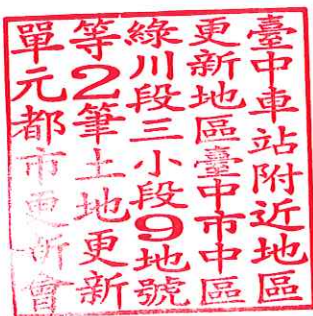 臺中車站附近地區
更新地區臺中市中區
綠川段三小段9地號
等2筆土地更新
單元都市更新會